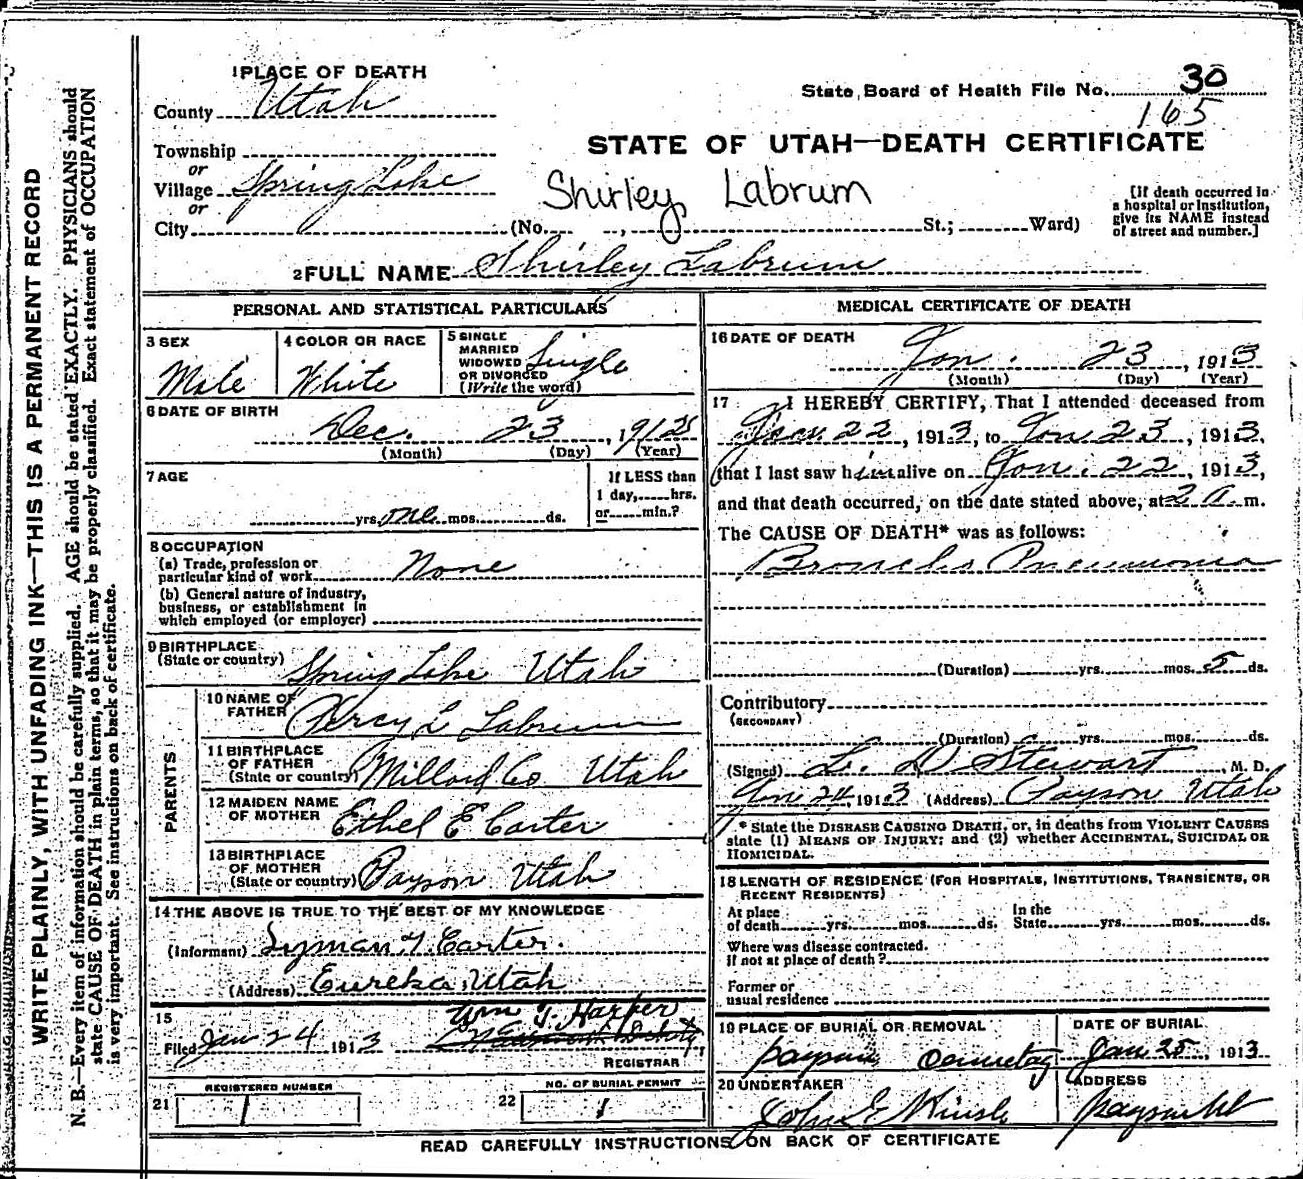 WRITE PLAINLY, WITH UNFADING INK—THIS IS A PERMANENT RECORD
N. B.—Every item of information should be carefully supplied. AGE should be stated EXACTLY. PHYSICIANS should
state CAUSE OF DEATH in plain terms, so that it may be properly classified. Exact statement of OCCUPATION
is very important. See instructions on back of certificate.
1 PLACE OF DEATH
County Utah
Township
or
Village Spring Lake
or
City (No. , St.; Ward)
State Board of Health File No. 30
165
STATE OF UTAH—DEATH CERTIFICATE
Shirley Labrum
[If death occurred in
a hospital or institution,
give its NAME instead
of street and number.]
2 FULL NAME Shirley Labrum
PERSONAL AND STATISTICAL PARTICULARS
3 SEX
Male
4 COLOR OR RACE
White
5 SINGLE
MARRIED
WIDOWED
OR DIVORCED
(Write the word)
Single
6 DATE OF BIRTH
Dec. 23, 1912
(Month) (Day) (Year)
7 AGE
yrs. one mos. ds.
If LESS than
1 day, hrs.
or min.?
8 OCCUPATION
(a) Trade, profession or
particular kind of work None
(b) General nature of industry,
business, or establishment in
which employed (or employer)
9 BIRTHPLACE
(State or country) Spring Lake Utah
PARENTS
10 NAME OF
FATHER Percy L Labrum
11 BIRTHPLACE
OF FATHER
(State or country) Millard Co. Utah
12 MAIDEN NAME
OF MOTHER Ethel E Carter
13 BIRTHPLACE
OF MOTHER
(State or country) Payson Utah
14 THE ABOVE IS TRUE TO THE BEST OF MY KNOWLEDGE
(Informant) Lyman T. Carter.
(Address) Eureka, Utah
15
Wm T. Harper
Filed Jan 24 1913
REGISTRAR
REGISTERED NUMBER
21 1
NO. OF BURIAL PERMIT
22 1
MEDICAL CERTIFICATE OF DEATH
16 DATE OF DEATH
Jan. 23, 1913
(Month) (Day) (Year)
17 I HEREBY CERTIFY, That I attended deceased from
Jan. 22, 1913, to Jan 23, 1913,
that I last saw him alive on Jan. 22, 1913,
and that death occurred, on the date stated above, at 2 A. m.
The CAUSE OF DEATH* was as follows:
Broncho Pneumonia
(Duration) yrs. mos. 5 ds.
Contributory
(SECONDARY)
(Duration) yrs. mos. ds.
(Signed) L. D Stewart, M. D.
Jan 24, 1913 (Address) Payson Utah
* State the DISEASE CAUSING DEATH, or, in deaths from VIOLENT CAUSES
state (1) MEANS OF INJURY; and (2) whether ACCIDENTAL, SUICIDAL OR
HOMICIDAL.
18 LENGTH OF RESIDENCE (FOR HOSPITALS, INSTITUTIONS, TRANSIENTS, OR
RECENT RESIDENTS)
At place
of death yrs. mos. ds.
In the
State yrs. mos. ds.
Where was disease contracted.
If not at place of death?
Former or
usual residence
19 PLACE OF BURIAL OR REMOVAL
Payson Cemetery
DATE OF BURIAL
Jan 25, 1913
20 UNDERTAKER
John E
ADDRESS
Payson Ut
READ CAREFULLY INSTRUCTIONS ON BACK OF CERTIFICATE